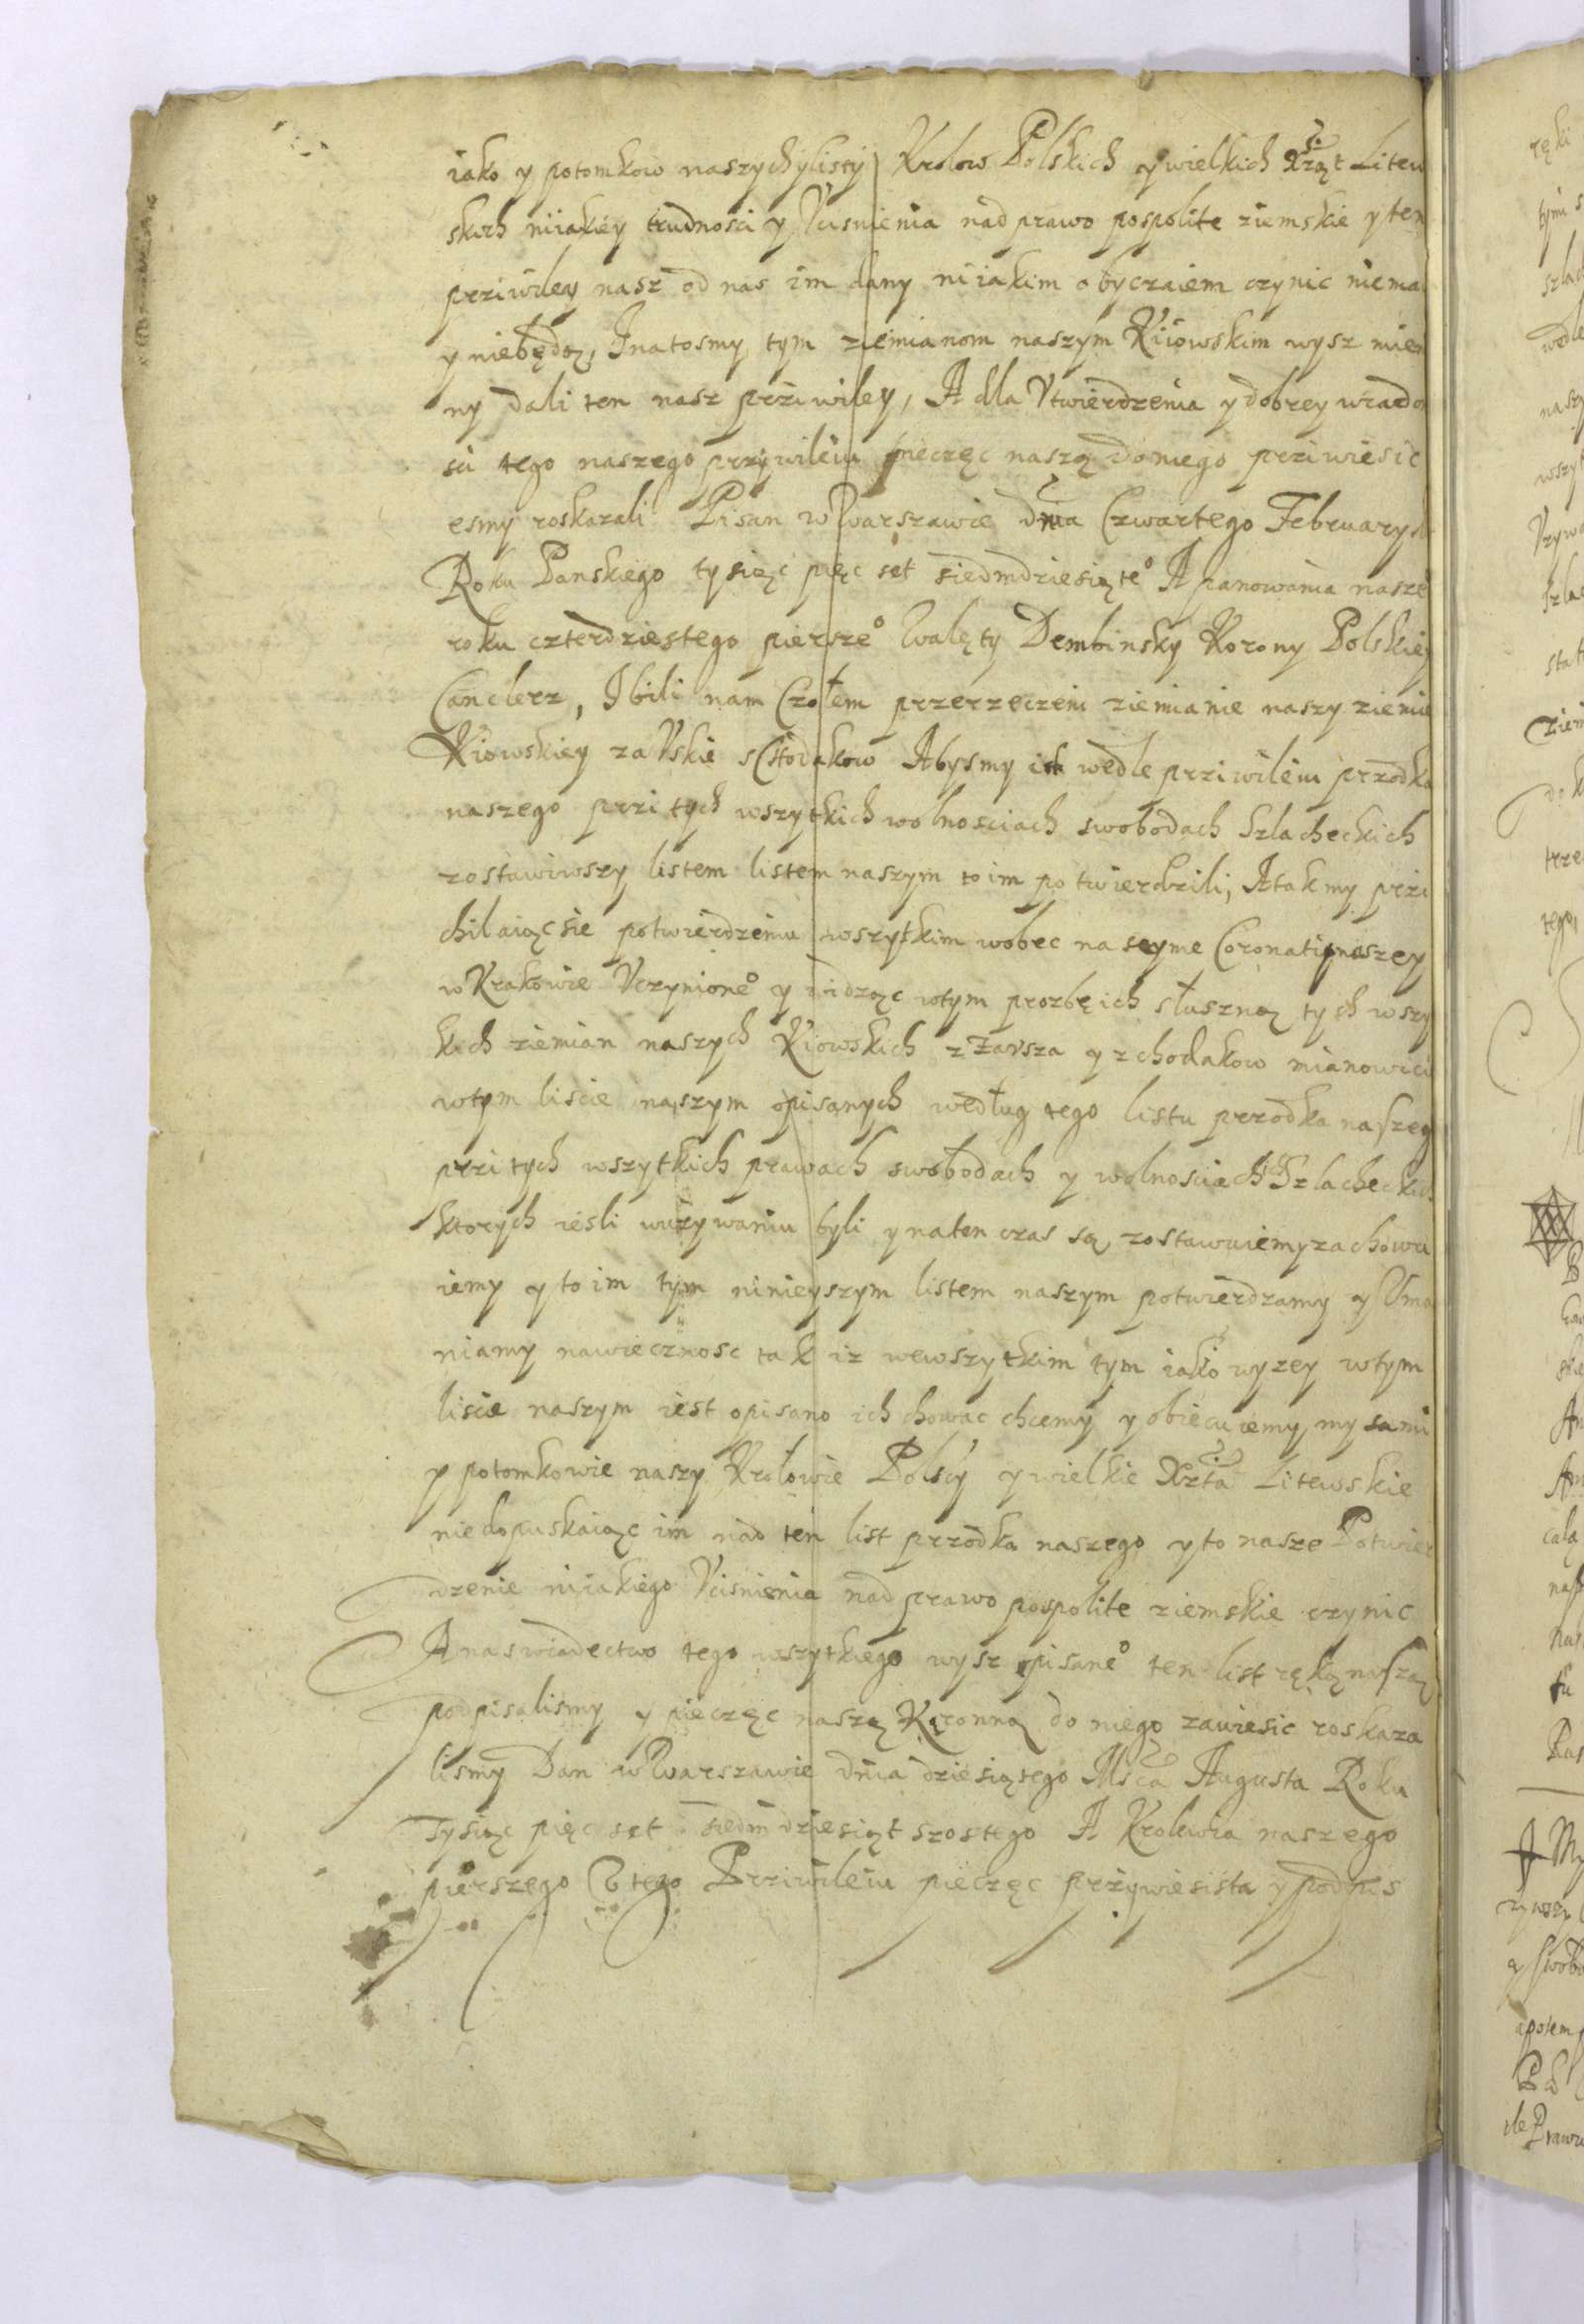 iako y potomkow naszych ylisty Krolow Polskich y wielkich Xząt Litew
skich niiakiey trudnosci y Vcisnienia nad prawo pospolite ziemskie y ten
priwiley nasz od nas im dany niiakim obyczaiem czynic niema
y niebędą, Inatosmy tym ziemianom naszym Kiiowskim wysz mien
ny dali ten nasz priwiley, A dla Vtwierdzenia y dobrey wiardo
sci tego naszego przywileiu pieczęc naszą doniego priwiesic
esmy roskazali Pisan w Warszawie dnia Czwartego February
Roku Panskiego tysiąc pięc set siedmdziesiąte° A panowania nasze
roku czterdziestego piersze° Walęty Dembinsky Korony Polskiey
Canclerz, I bili nam Czołem przerzeczeni ziemianie naszy ziemie
Kiowskiey Abysmy ich wedle priwileiu przodka
naszego pri tych wszytkich wolnosciach swobodach Szlacheckich
zostawiwszy listem listem naszym to im potwierdzili, A tak my pri
chilaiąc sie potwierdzeniu wszytkim wobec na seyme Coronatiy naszey
w Krakowie Vczynione° y widząc wtym prozbę ich słuszną tych wszy
kich ziemian naszych Kiowskich y z chodakow mianowici
wtym liscie naszym opisanych według tego listu przodka naszeg
pri tych wszytkich prawach swobodach y wolnosciach Szlacheckich
ktorych iesli wużywaniu byli y naten czas są zostawuiemy zachowu
iemy y to im tym ninieyszym listem naszym potwierdzamy y Vma
niamy nawiecznosc tak iz wewszytkim tym iako wyzey wtym
liscie naszym iest opisano ich chowac chcemy y obiecuiemy my sami
y potomkowie naszy Krolowie Polscy y wielkie Xzta Litewskie
niedopuskaiąc im nad ten list przodka naszego y to nasze Potwier
dzenie niiakiego Vcisnienia nad prawo pospolite ziemskie czynic
A na swiadectwo tego wszytkiego wysz opisane° ten list ręką naszą
podpisalismy y pieczęc naszą Koronną do niego zawiesic roskaza
lismy Dan w Warszawie dnia dziesiątego Msca Augusta Roku
Tysiąc pięc set siedmdziesiąt szostego A Krolewia naszego
pierszego V tego Priwileiu pieczęc przywiesista y podpis